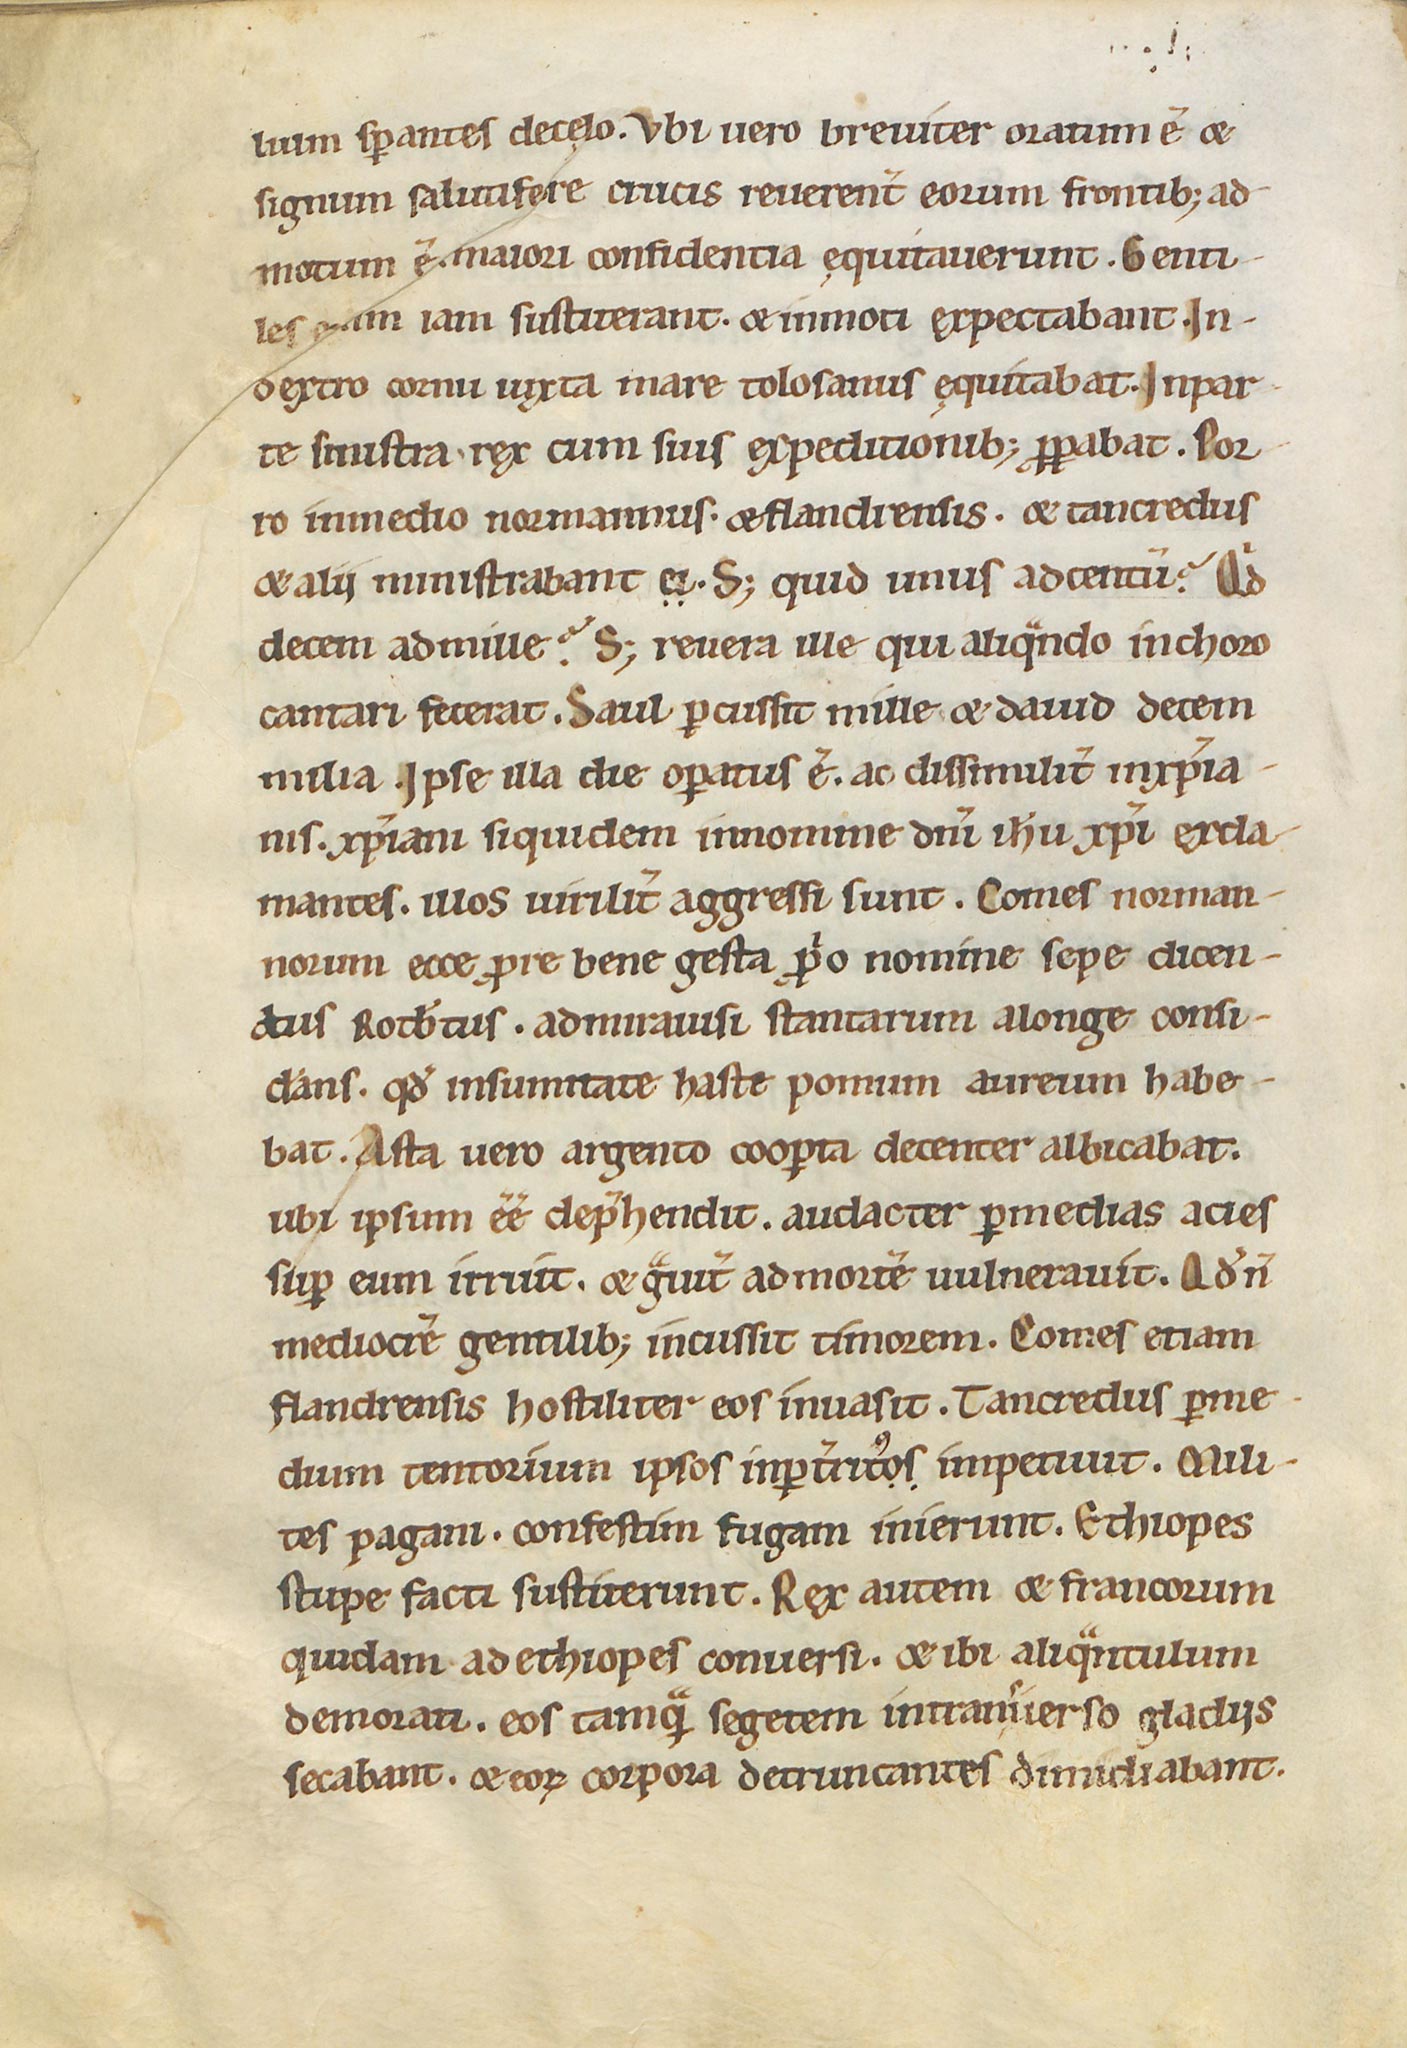 lium sꝑantes decęlo. Vbi uero breuiter oratum ē &
signum salutifere crucis reuerent̄ eorum frontib; ad
motum ē. maiori confidentia ęquitauerunt. Genti-
les enim iam sustiterant. & inmoti expectabant. In-
dextro cornu iuxta mare tolosanus ęquitabat. Inpar-
te sinistra rex cum suis expeditionib; ꝓꝑabat. Por-
ro inmedio normannus. & flandrensis. & tancredus
& alij ministrabant ei. S; quid unus adcentū? Qͥd
decem admille? S; reuera ille qui aliqͣndo inchoro
cantari fecerat. Saul ꝑcussit mille & dauid decem
milia. Ipse illa die oꝑatus ē. ac dissimilit̄ inxp̄ia-
nis. xp̄iani siquidem innomine dn̄i ih̄u xp̄i excla-
mantes. illos uirilit̄ aggressi sunt. Comes norman-
norum ecce ꝓre bene gesta pͥo nomine sepe dicen-
dus Rotb̄tus. admirauisi stantarum alonge consi-
d̄ans. qd̄ insumitate haste pomum aureum habe-
bat. Asta uero argento cooꝑta decenter albicabat.
ubi ipsum ēē dep̄hendit. audacter ꝑmedias acies
suꝑ eum irruit. & gͣuit̄ admortē uulnerauit. Qd̄ n̄
mediocrē gentilib; incussit timorem. Comes etiam
flandrensis hostiliter eos inuasit. Tancredus ꝑme-
dium tentorium ipsos inꝑt̄ritꝰos impetiuit. Mili-
tes pagani. confestim fugam inierunt. Ethiopes
stupe facti sustiterunt. Rex autem & francorum
quidam adethiopes conuersi. & ibi aliqͣntulum
demorati. eos tamqͣ̄ segetem intranuerso gladijs
secabant. & eoꝝ corpora detruncantes dimidiabant.